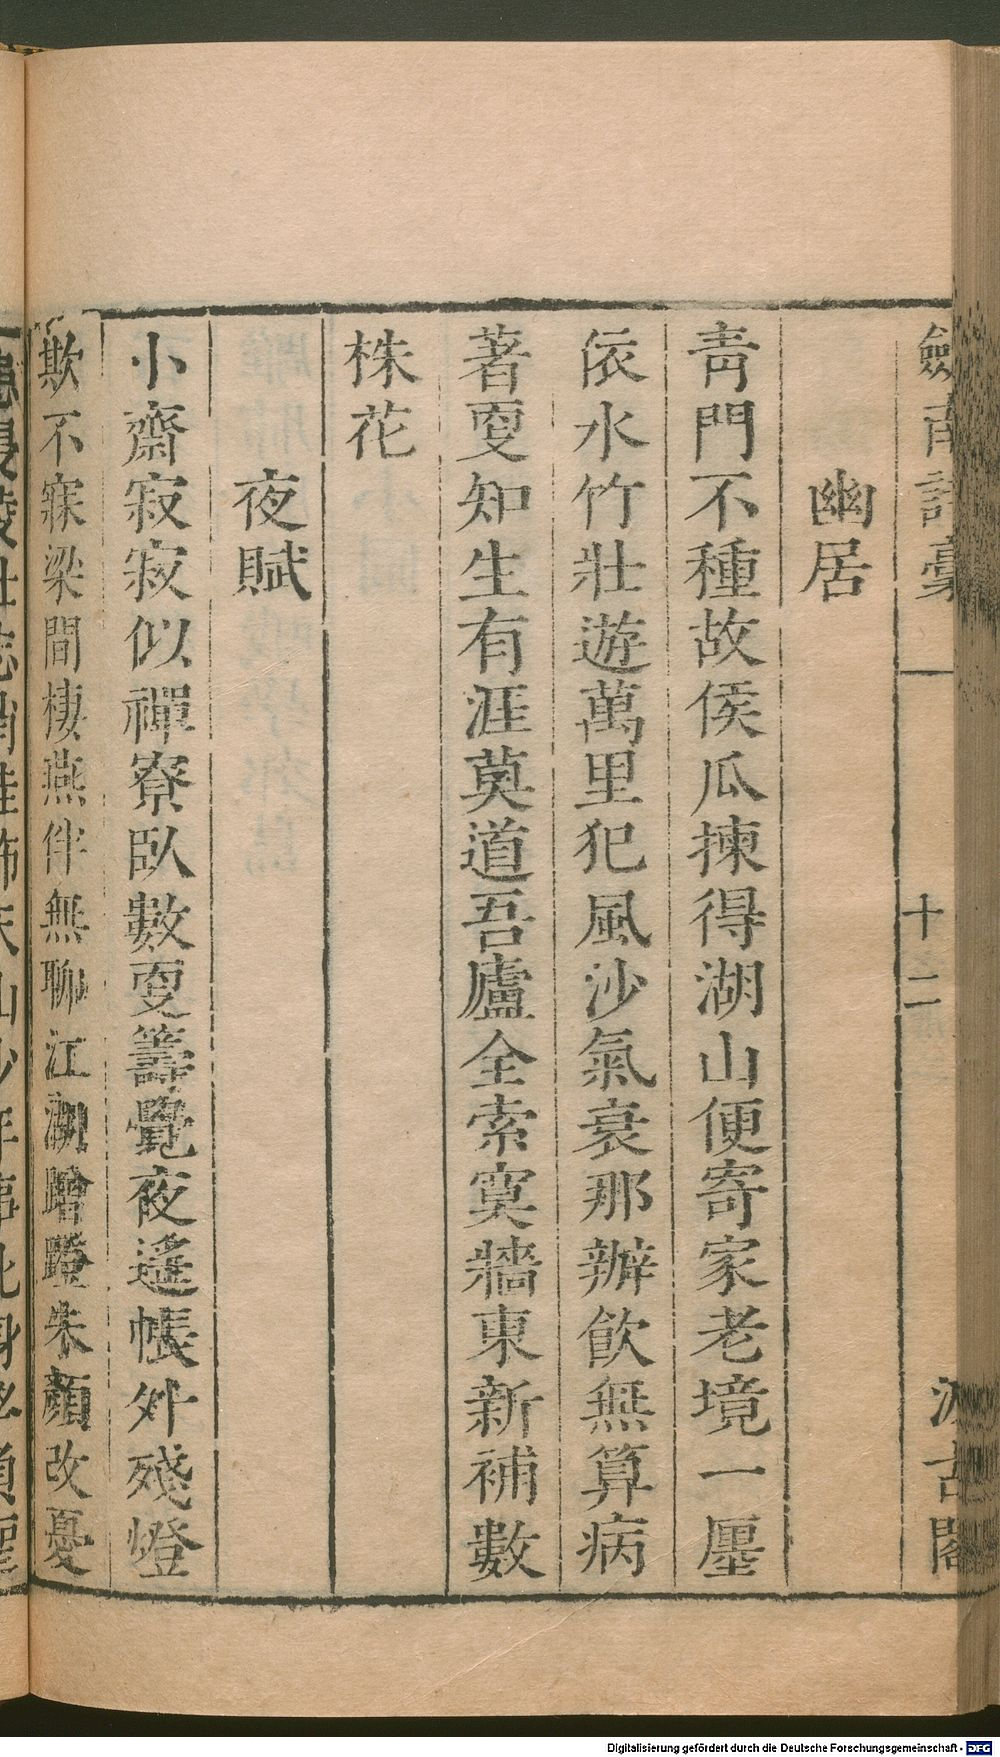 劍南詩稾
十二
汲古閣
幽居
靑門不種故侯瓜揀得湖山便寄家老境一廛
依水竹壯遊萬里犯風沙氣衰那辦飲無算病
著㪅知生有涯莫道吾廬全索寞牆東新補數
株花
夜賦
小齋寂寂似禪寮臥數㪅籌覺夜遙帳外殘燈
欺不寐梁間棲燕伴無聊江湖蹭蹬朱顏改憂
Digitalisierung gefördert durch die Deutsche Forschungsgemeinschaft - DFG